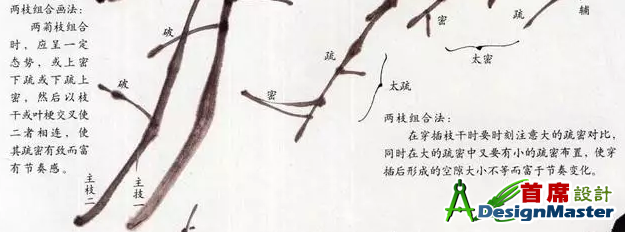 两枝组合画法：
两菊枝组合
时，应呈一定
态势，或上密
下疏或下疏上
密，然后以枝
干或叶梗交叉使
二者相连，使
其疏密有致而富
有节奏感。
破
破
主枝二
主枝一
密
疏
密
疏
辅
太密
太疏
两枝组合法：
在穿插枝干时要时刻注意大的疏密对比，
同时在大的疏密中又要有小的疏密布置，使穿
插后形成的空隙大小不等而富于节奏变化。
首席設計
DesignMaster